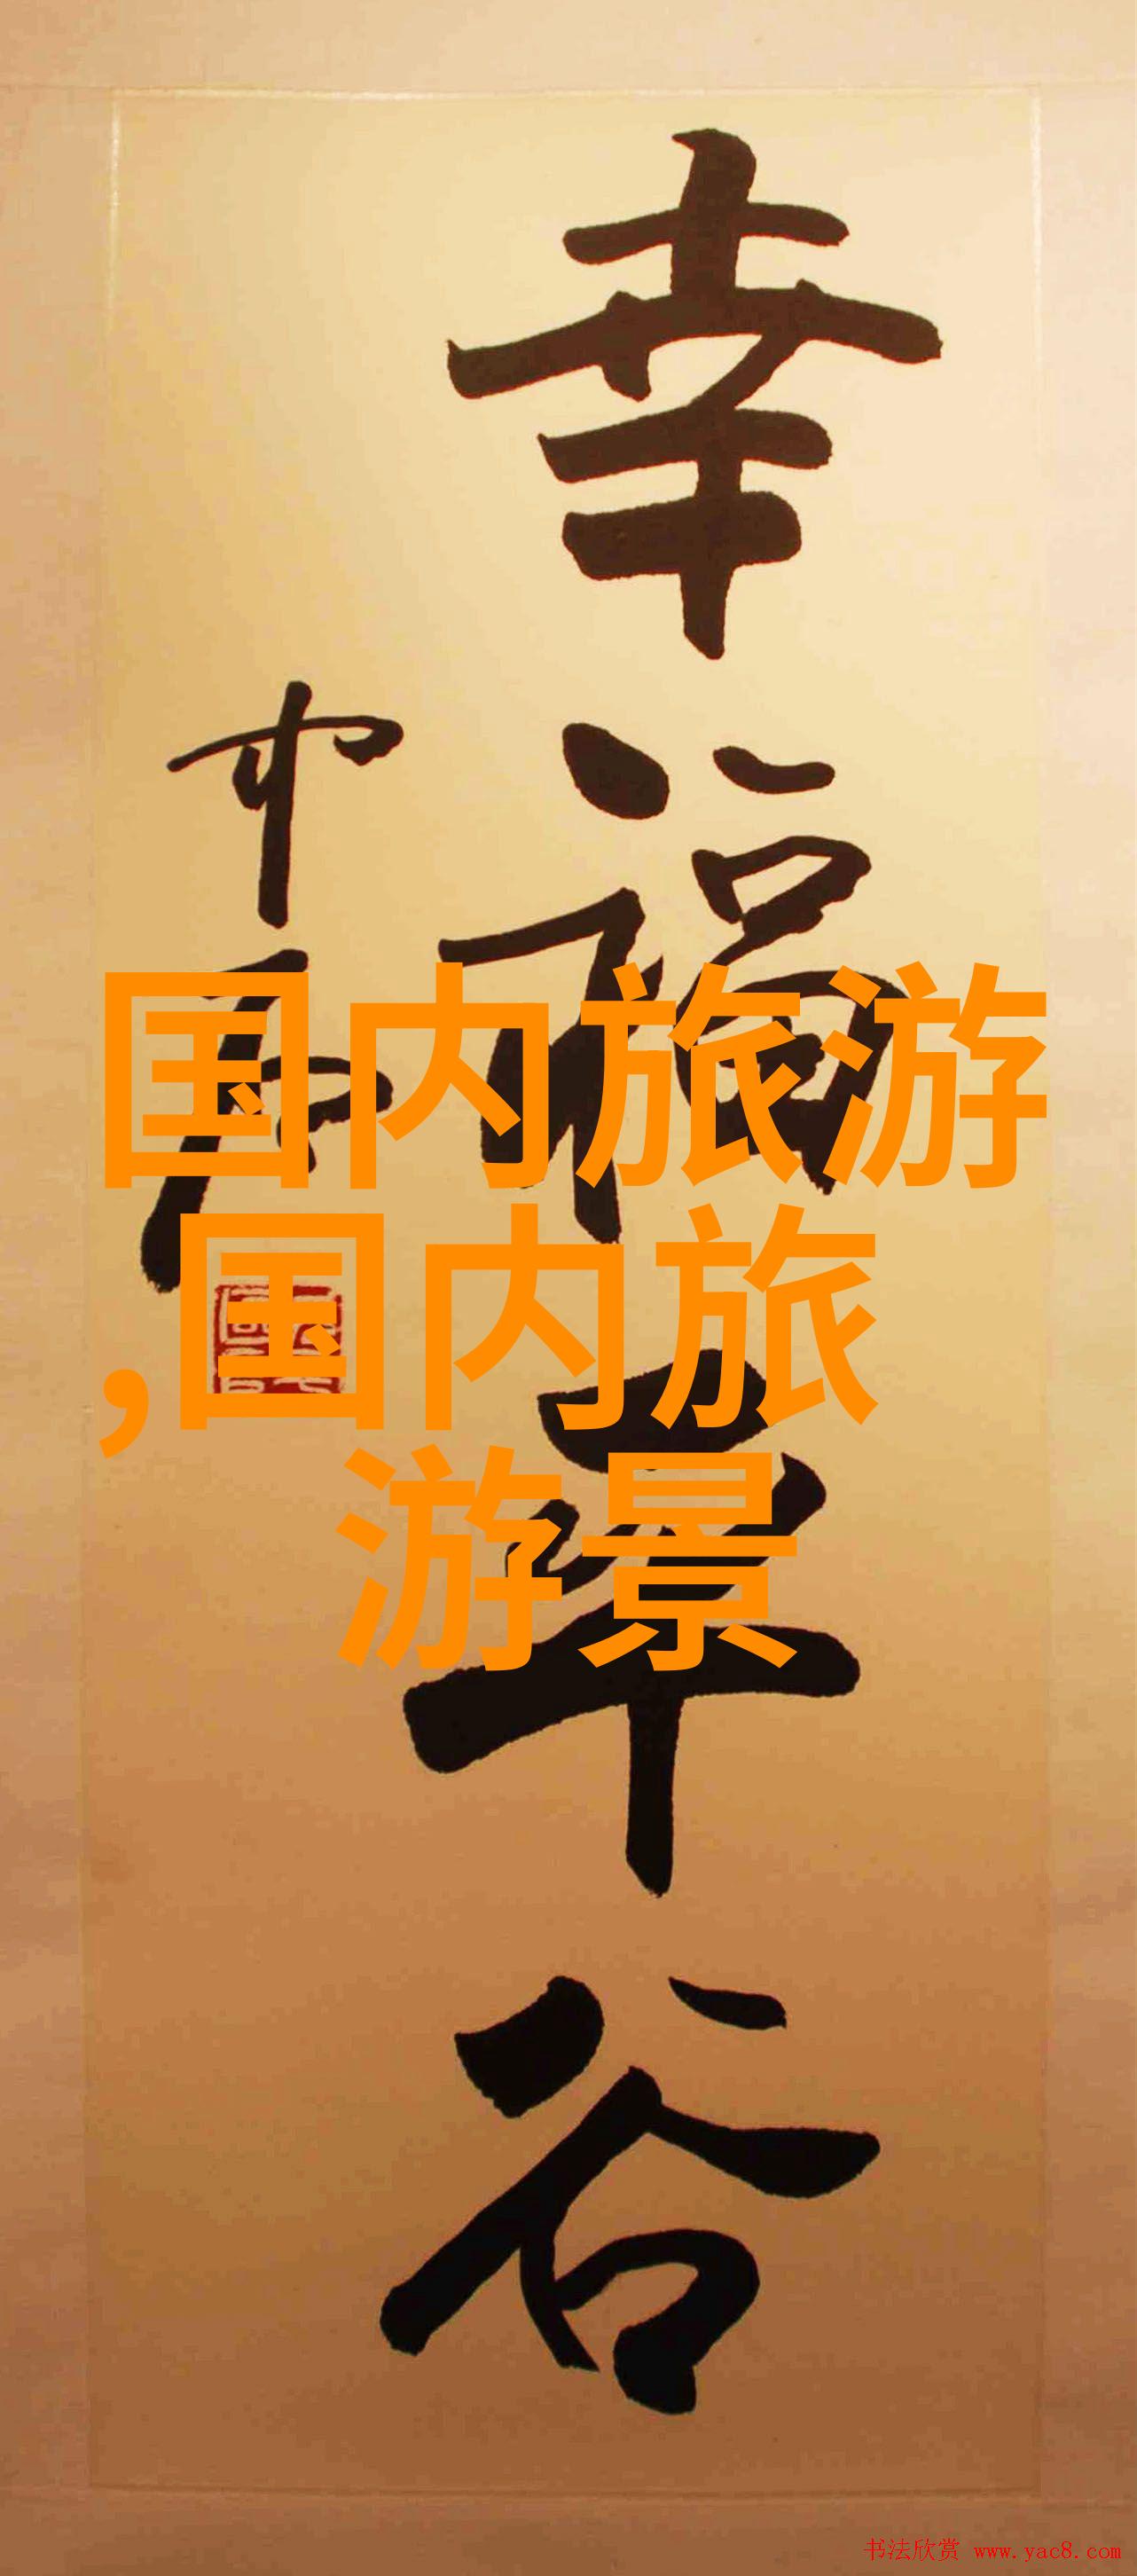 幸福平谷
中石
国内旅游
,国内旅
游景
书法欣赏 www.yac8.com